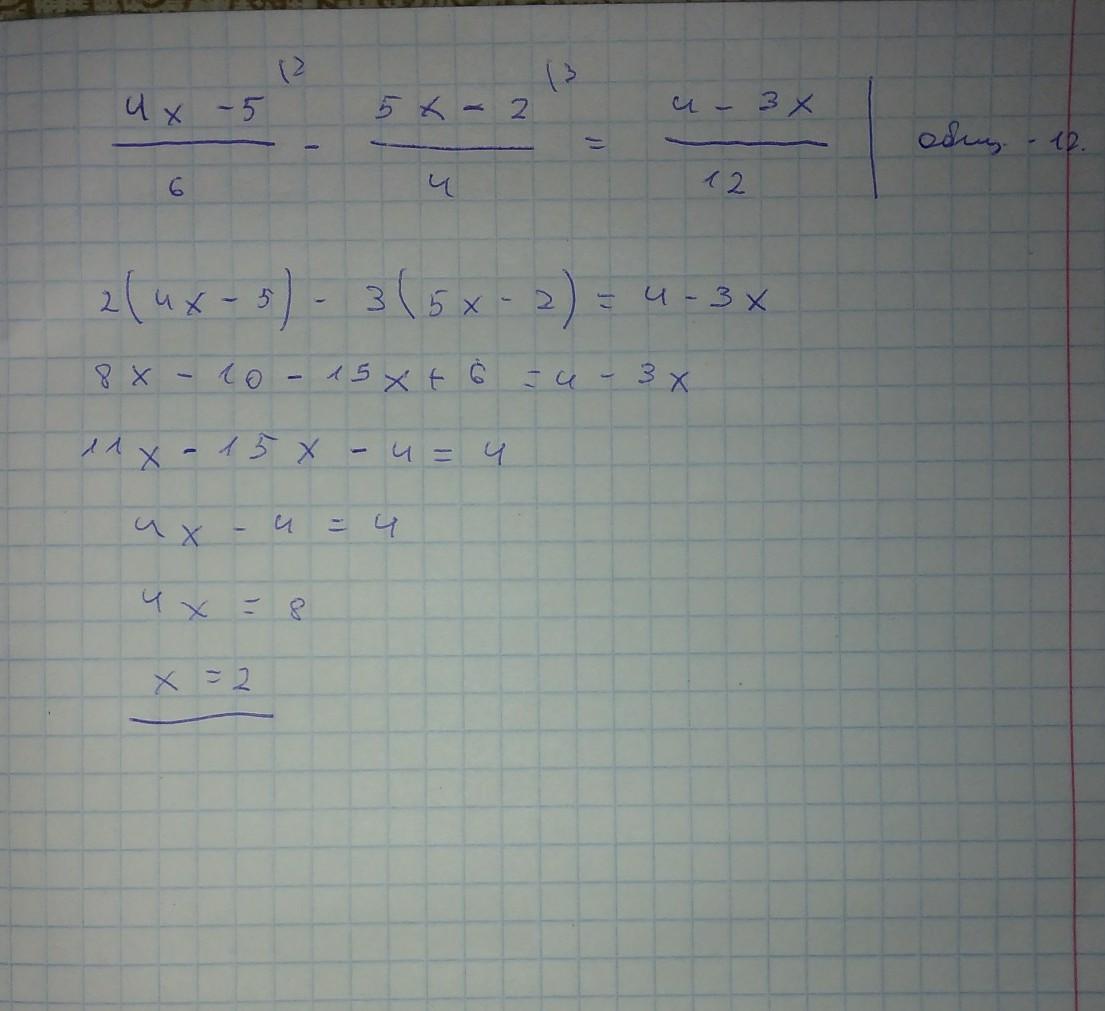 (2 (3
4x - 5 / 6 - 5x - 2 / 4 = 4 - 3x / 12 | общ. - 12.
2(4x - 5) - 3(5x - 2) = 4 - 3x
8x - 10 - 15x + 6 = 4 - 3x
11x - 15x - 4 = 4
4x - 4 = 4
4x = 8
x = 2